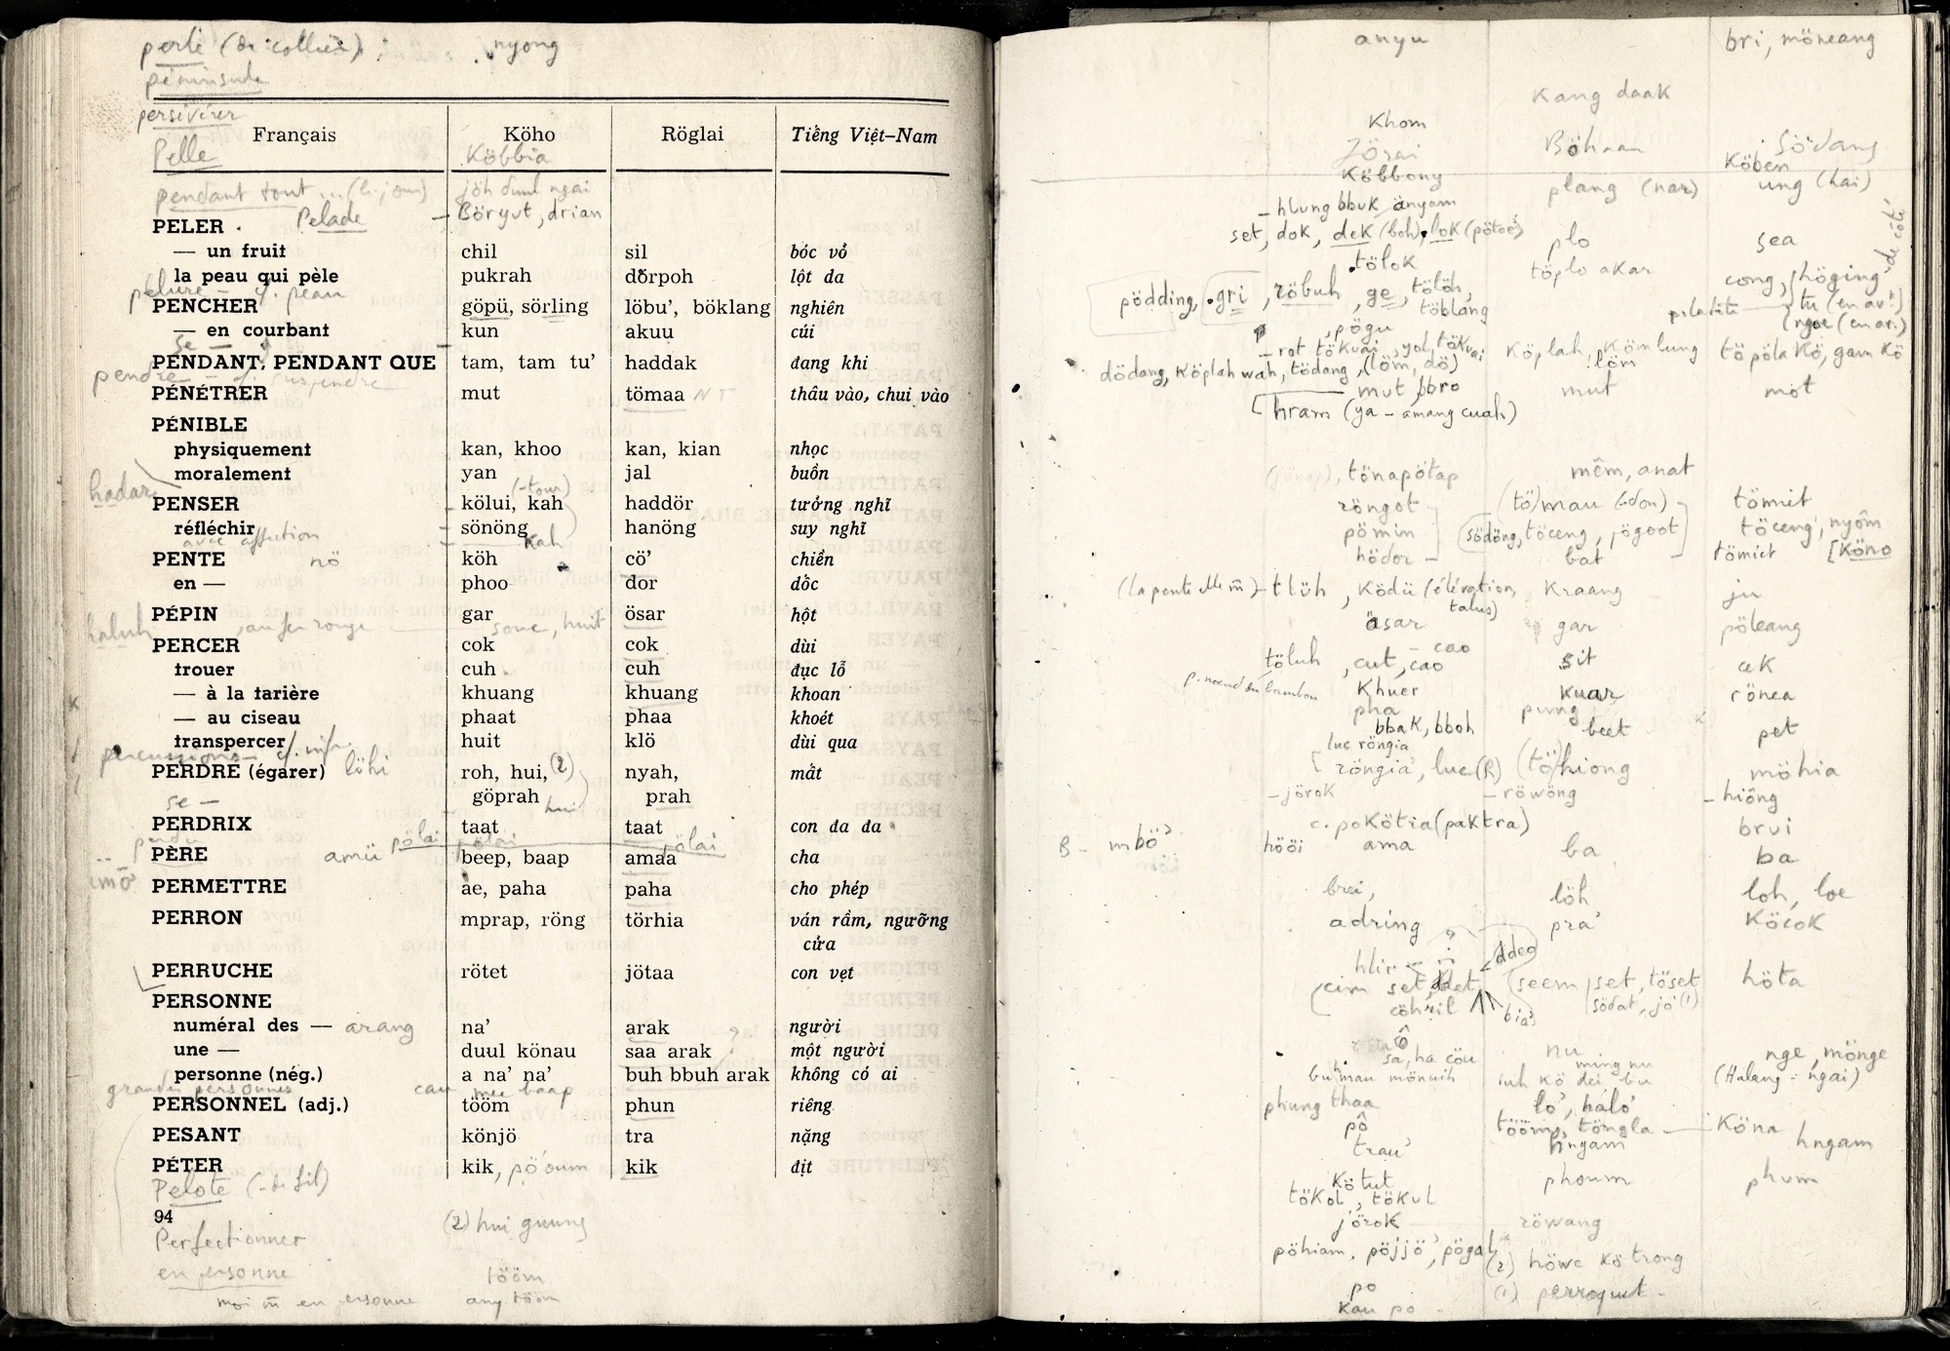 perle (de collier) : nyong
péninsule
persévérer
Français Köho Röglai Tiếng Việt–Nam
Pelle Köbbia
pendant tout ... (le jour) jöh duul ngai
Pelade – Böryut, drian
PELER
— un fruit chil sil bóc vỏ
la peau qui pèle pukrah dörpoh lột da
pelure – cf. peau
PENCHER göpü, sörling löbu', böklang nghiên
— en courbant kun akuu cúi
se —
PENDANT, PENDANT QUE tam, tam tu' haddak đang khi
pendre – cf. suspendre
PÉNÉTRER mut tömaa NT thâu vào, chui vào
PÉNIBLE
physiquement kan, khoo kan, kian nhọc
moralement yan jal buồn
hadar (-tour)
PENSER kölui, kah haddör tưởng nghĩ
réfléchir sönöng hanöng suy nghĩ
avec affection kah
PENTE nö köh cö' chiền
en — phoo dor dốc
PÉPIN gar ösar hột
haluh, au fer rouge — soue, huit
PERCER cok cok dùi
trouer cuh cuh đục lỗ
— à la tarière khuang khuang khoan
— au ciseau phaat phaa khoét
transpercer huit klö dùi qua
percussions – cf. instr.
PERDRE (égarer) löhi roh, hui, (2) nyah, mất
göprah prah
se — hui
PERDRIX taat taat con đa đa
perdu pölai pölai pölai
PÈRE amü beep, baap amaa cha
PERMETTRE ae, paha paha cho phép
PERRON mprap, röng törhia ván rầm, ngưỡng
cửa
PERRUCHE rötet jötaa con vẹt
PERSONNE
numéral des — arang na' arak người
une — duul könau saa arak một người
personne (nég.) a na' na' buh bbuh arak không có ai
grandes personnes cau mee baap
PERSONNEL (adj.) tööm phun riêng
PESANT könjö tra nặng
PÉTER kik, pö'oum kik địt
Pelote (- de fil)
94
Perfectionner (2) hui guung
en personne tööm
moi m̃ en personne any tööm
anyu bri, möneang
Kang daak
Khom
Jörai Böhnar Södang
Köbbony Köben
plang (nar) ung (hai)
– hlung bbuk änyam
set, dok, dek (boh), lok (pötoe) plo sea
tölok töplo akar
cong, höging, de côté
pödding, gri, röbuh, ge, tölöh, töblang
tu (en avt)
pögu ngoe (en arr.)
– rot tökuai, yol, tökuai Köplah, Kömlung töpöla Kö, gam Kö
dödang, Köplah wah, tödang, (löm, dö) löm
mut, bbro mut möt
hram (ya – amang cuah)
tönapötap mêm, anat
röngot (tö)mau (-don) tömiet
pömin södöng, töceng, jögoot töceng, nyôm
hödor bat tömiet [Köno
(la pente elle m̃) – tlüh, Ködü (élévation, talus) Kraang ju
äsar gar pöleang
– cao
töluh, cut, cao sit cek
p. noeud du bambou Khuer Kuar rönea
pha pung
bbak, bboh beet pet
luc röngia
röngia, luc (R) (tö)hiong möhia
– jörok – röwöng – hiông
c. poKötia (paktra) brui
B – mbö' hööi ama ba ba
brei, löh loh, loe
adring pra' Köcok
ddeo
cim set, seem set, töset höta
cöhril bia' södat, jö (1)
sa, ha cöu nu nge, mönge
ming nu
(Halang : ngai)
phung thaa lo', halo'
pô tööm, töngla — Köna
trau' hngam hngam
Kötut phoum phum
töKol, töKul
jörok röwang
pöhiam, pöjjö', pögal (2) höwe Kö trong
po (1) perroquet
Kau po